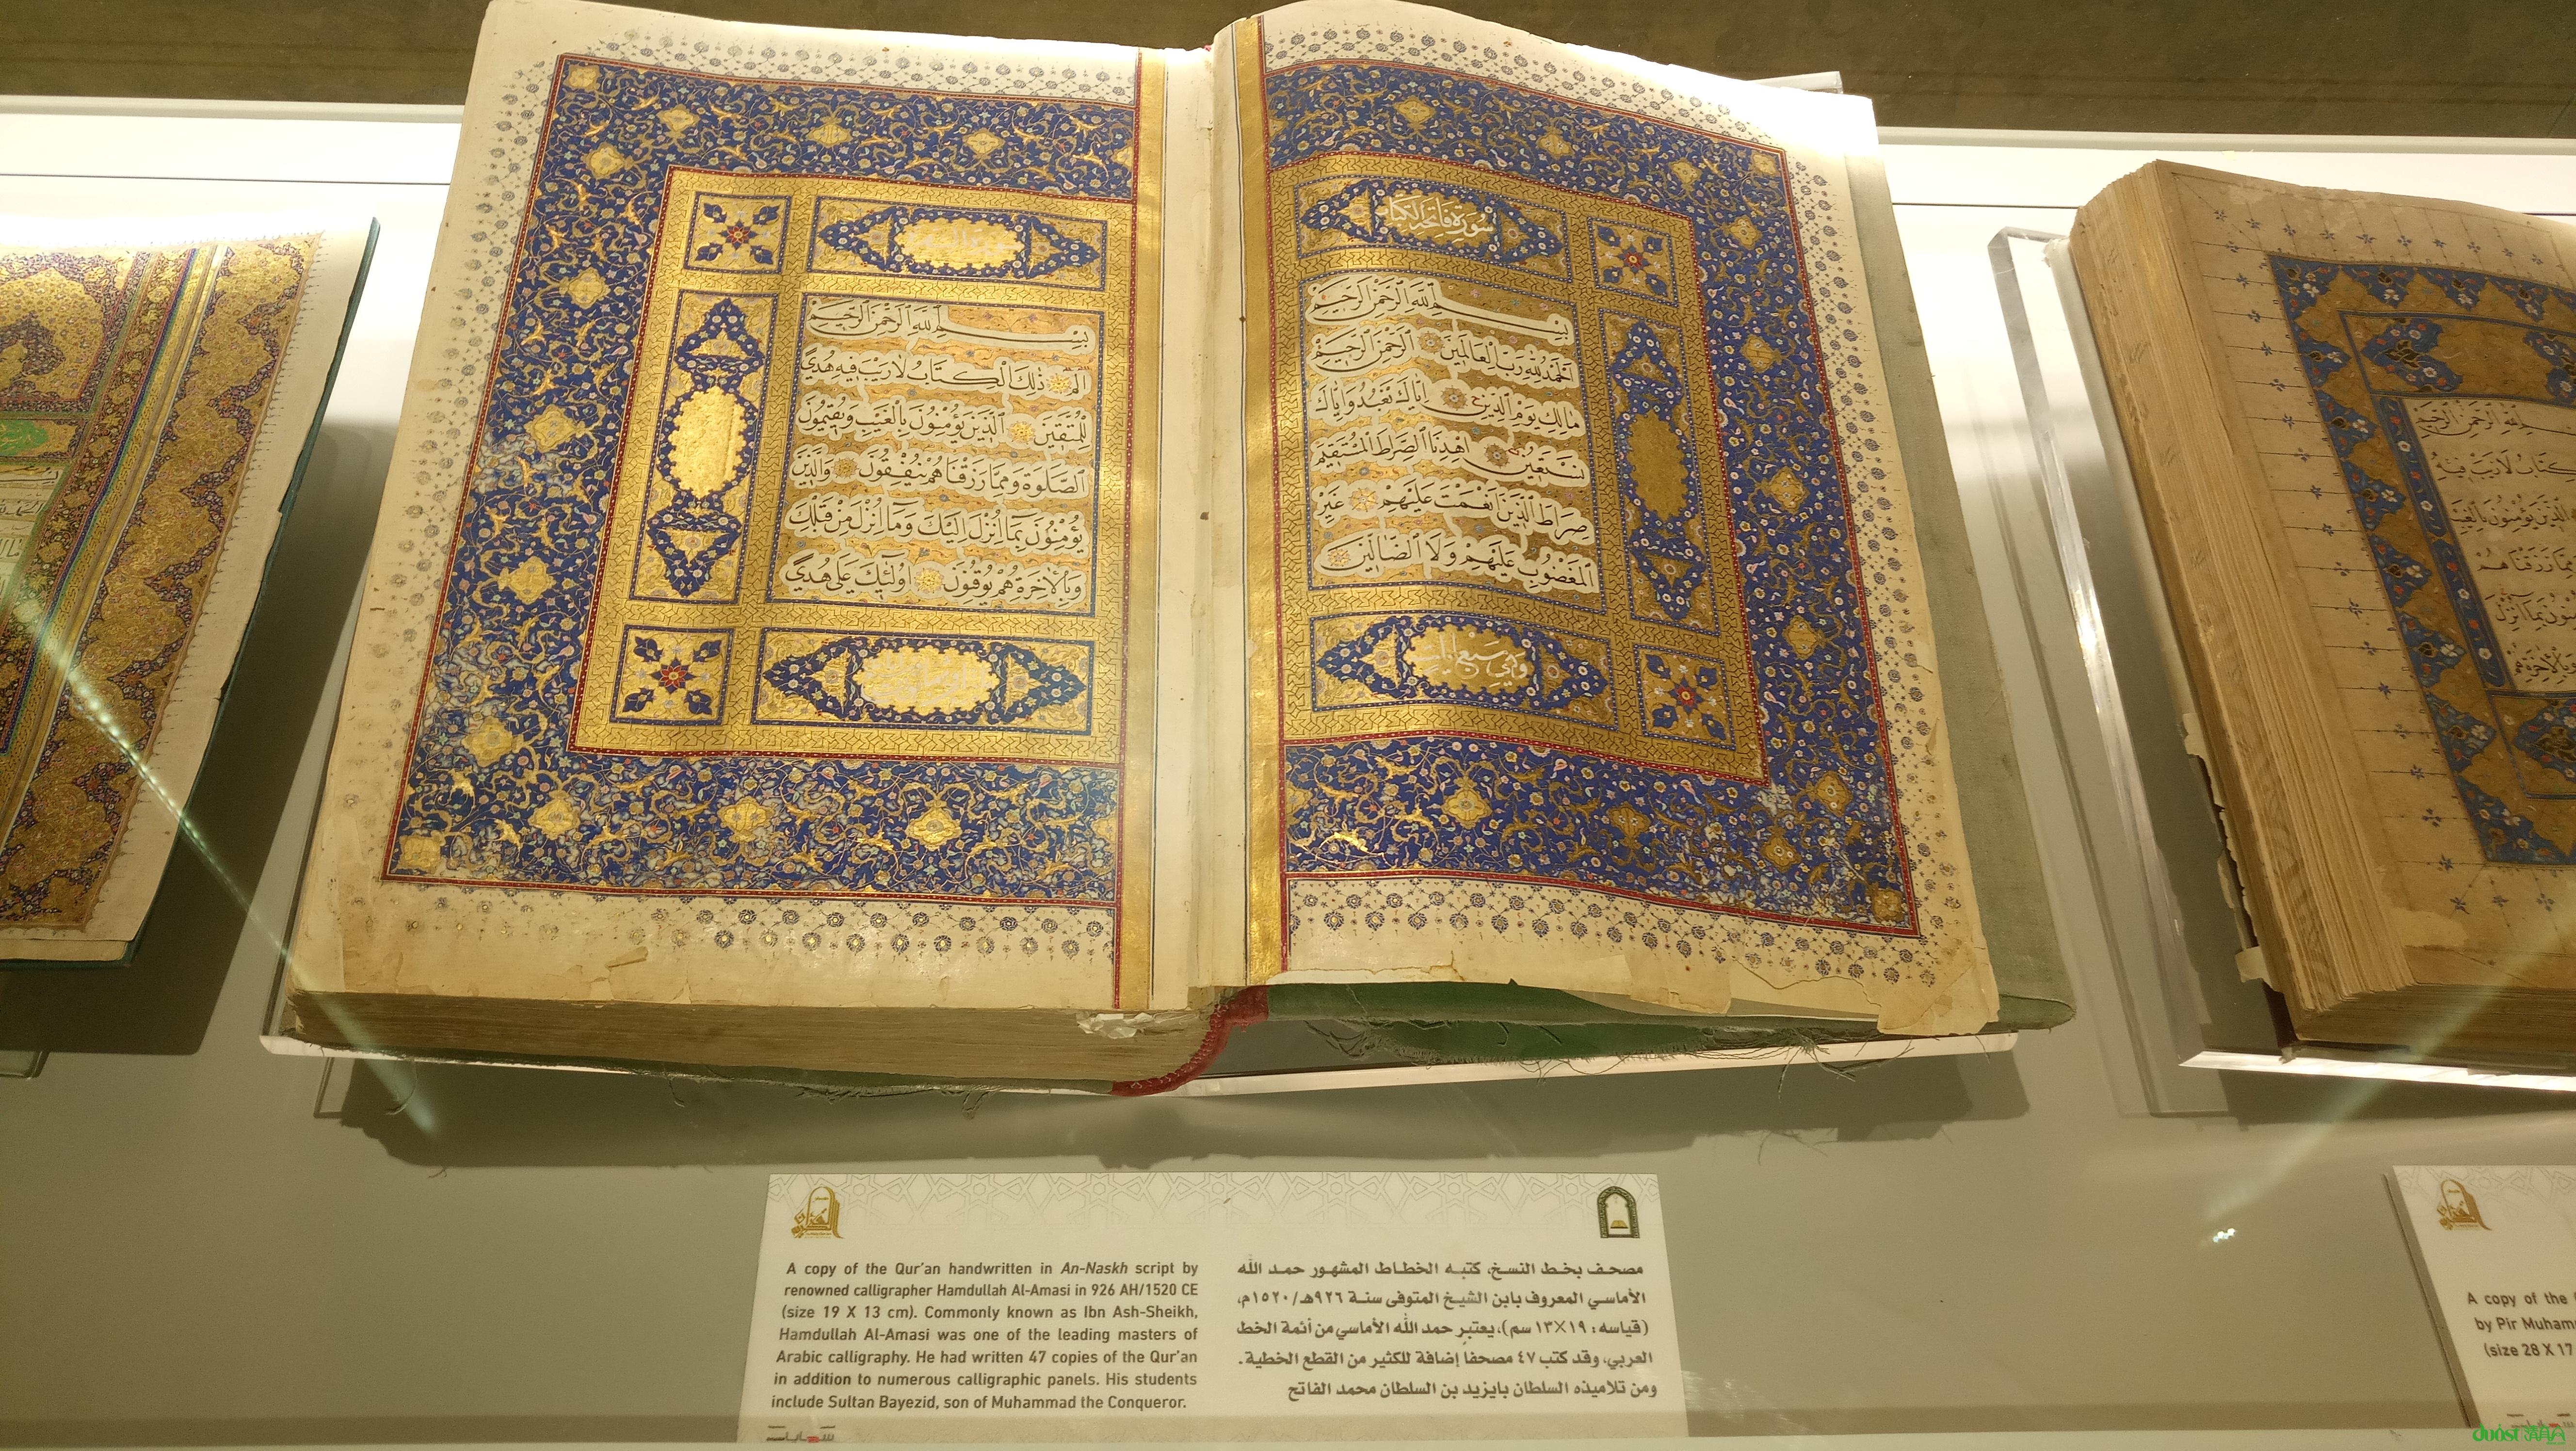 سورة فاتحة الكتاب
بسم الله الرحمن الرحيم
الحمد لله رب العالمين الرحمن الرحيم
مالك يوم الدين اياك نعبد واياك
نستعين اهدنا الصراط المستقيم
صراط الذين انعمت عليهم غير
المغضوب عليهم ولا الضالين
وهي سبع ايات
بسم الله الرحمن الرحيم
الم ذلك الكتاب لا ريب فيه هدى
للمتقين الذين يؤمنون بالغيب ويقيمون
الصلوة ومما رزقناهم ينفقون والذين
يؤمنون بما انزل اليك وما انزل من قبلك
وبالاخرة هم يوقنون اولئك على هدى
A copy of the Qur'an handwritten in An-Naskh script by
renowned calligrapher Hamdullah Al-Amasi in 926 AH/1520 CE
(size 19 X 13 cm). Commonly known as Ibn Ash-Sheikh,
Hamdullah Al-Amasi was one of the leading masters of
Arabic calligraphy. He had written 47 copies of the Qur'an
in addition to numerous calligraphic panels. His students
include Sultan Bayezid, son of Muhammad the Conqueror.
مصحف بخط النسخ، كتبه الخطاط المشهور حمد الله
الأماسي المعروف بابن الشيخ المتوفى سنة ٩٢٦هـ/١٥٢٠م،
(قياسه: ١٩×١٣ سم)، يعتبر حمد الله الأماسي من أئمة الخط
العربي، وقد كتب ٤٧ مصحفا إضافة للكثير من القطع الخطية.
ومن تلاميذه السلطان بايزيد بن السلطان محمد الفاتح
A copy of the
by Pir Muham
(size 28 X 17